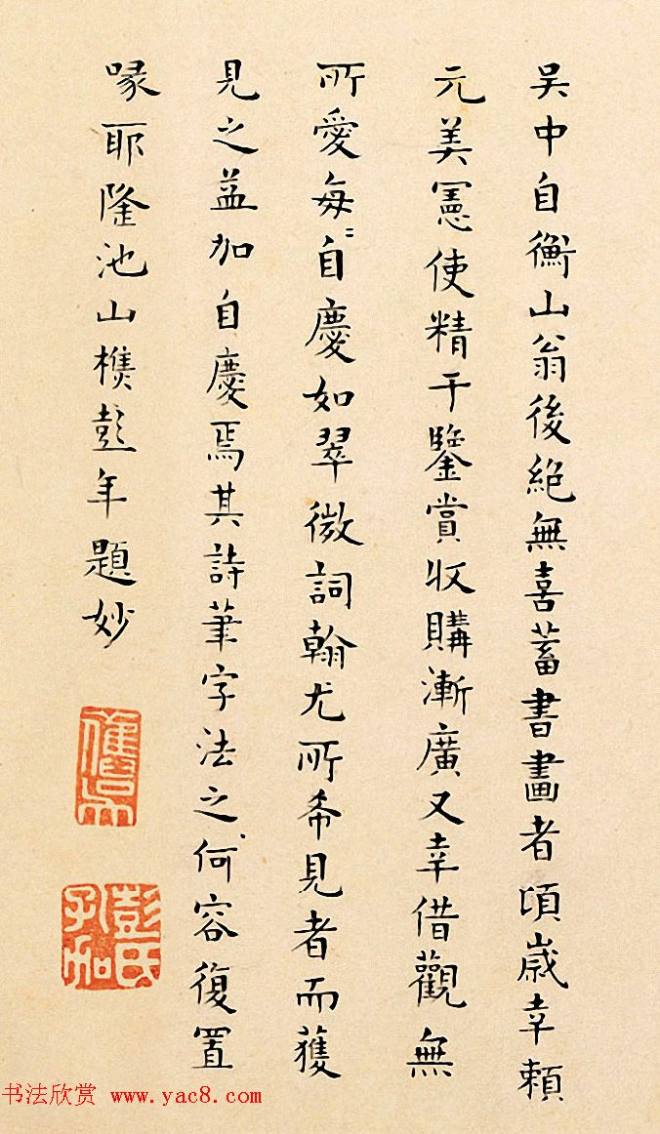 吳中自衡山翁後絕無喜蓄書畫者頃歲幸賴
元美憲使精于鑒賞收購漸廣又幸借觀無
所愛每〻自慶如翠微詞翰尤所希見者而獲
見之益加自慶焉其詩筆字法之何容復置
喙耶隆池山樵彭年題妙
彭氏孔加
书法欣赏 www.yac8.com